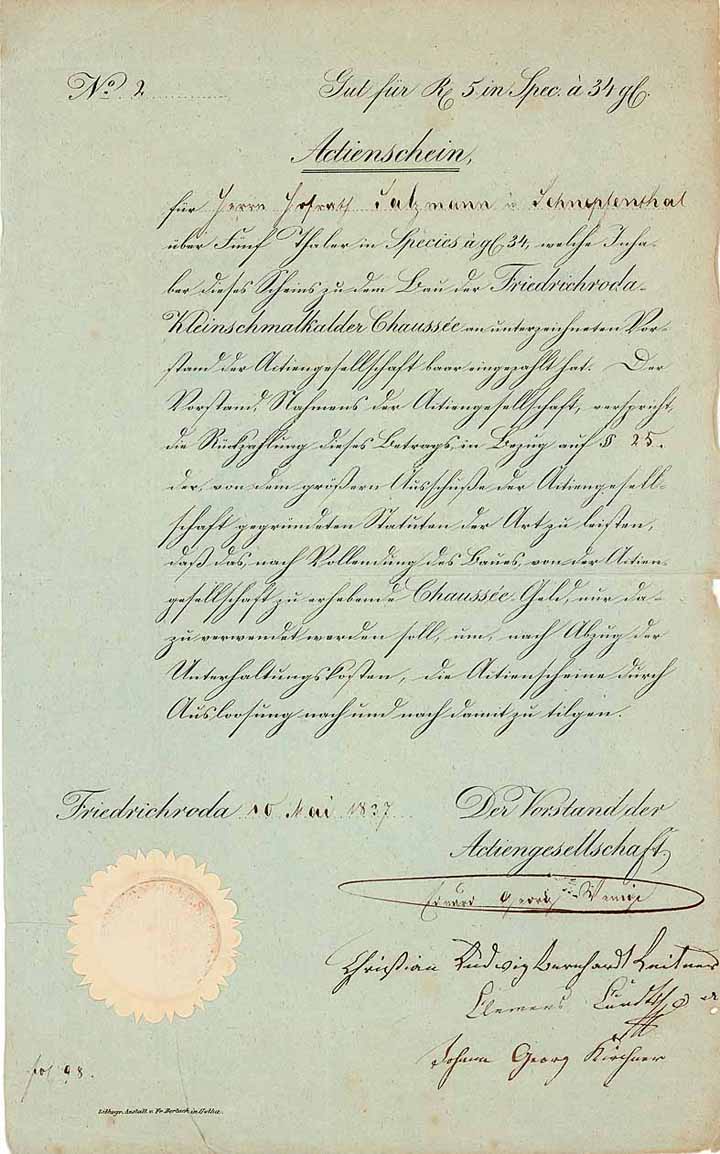 No. 2. Gut für R 5 in Spec. à 34 gl.
Actienschein,
für Herrn Hofrath Salzmann in Schnepfenthal
über Fünf Thaler in Species à gl. 34, welche Inha-
ber dieses Scheins zu dem Bau der Friedrichroda-
Kleinschmalkalder Chaussée an unterzeichneten Vor-
stand der Actiengesellschaft baar eingezahlt hat. Der
Vorstand, Nahmens der Actiengesellschaft, verspricht,
die Rückzahlung dieses Betrags, in Bezug auf § 25.
der, von dem größern Ausschuße der Actiengesell-
schaft gegründeten Statuten der Art zu leisten,
daß das, nach Vollendung des Baues, von der Actien-
gesellschaft zu erhebende Chaussée-Geld, nur da-
zu verwendet werden soll, um, nach Abzug der
Unterhaltungskosten, die Actienscheine durch
Ausloosung nach und nach damit zu tilgen.
Friedrichroda 10 Mai 1837
Der Vorstand der
Actiengesellschaft,
Eduard Georg
Christian Ludwig Bernhardt
Clemens
Johann Georg Kirchner
fol 98.
Lithogr. Anstalt v. Fr. Bertuch in Gotha.